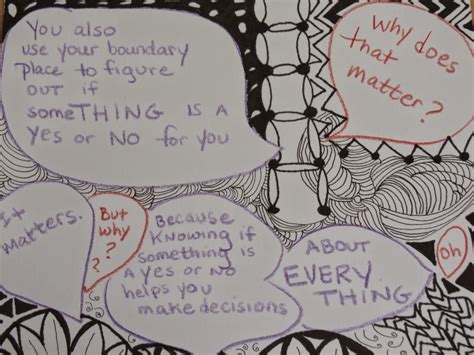 You also
use your boundary
place to figure
out if
someTHING IS A
Yes or NO for you
Why does
that
matter?
It
matters.
But
why
??
Because
Knowing if
something is
A yes or no
helps you
make decisions
ABOUT
EVERY
THING
oh